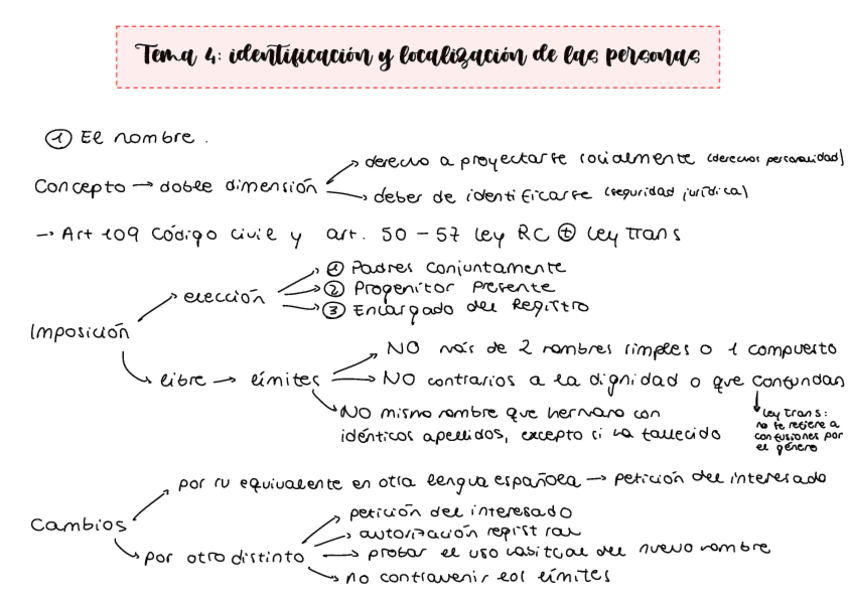 Tema 4: identificación y localización de las personas
① El nombre.
Concepto → doble dimensión
→ derecho a proyectarse socialmente (derechos personalidad)
→ deber de identificarse (seguridad jurídica)
→ Art 109 Código civil y art. 50 - 57 ley RC ⊕ ley trans
Imposición
→ elección
→ ① Padres conjuntamente
→ ② Progenitor presente
→ ③ Encargado del Registro
→ libre → límites
→ NO más de 2 nombres simples o 1 compuesto
→ NO contrarios a la dignidad o que confundan
↓ ley trans:
no se refiere a
confusiones por
el género
→ NO mismo nombre que hermano con
idénticos apellidos, excepto si ha fallecido
Cambios
→ por su equivalente en otra lengua española → petición del interesado
→ por otro distinto
→ petición del interesado
→ autorización registral
→ probar el uso habitual del nuevo nombre
→ no contravenir los límites